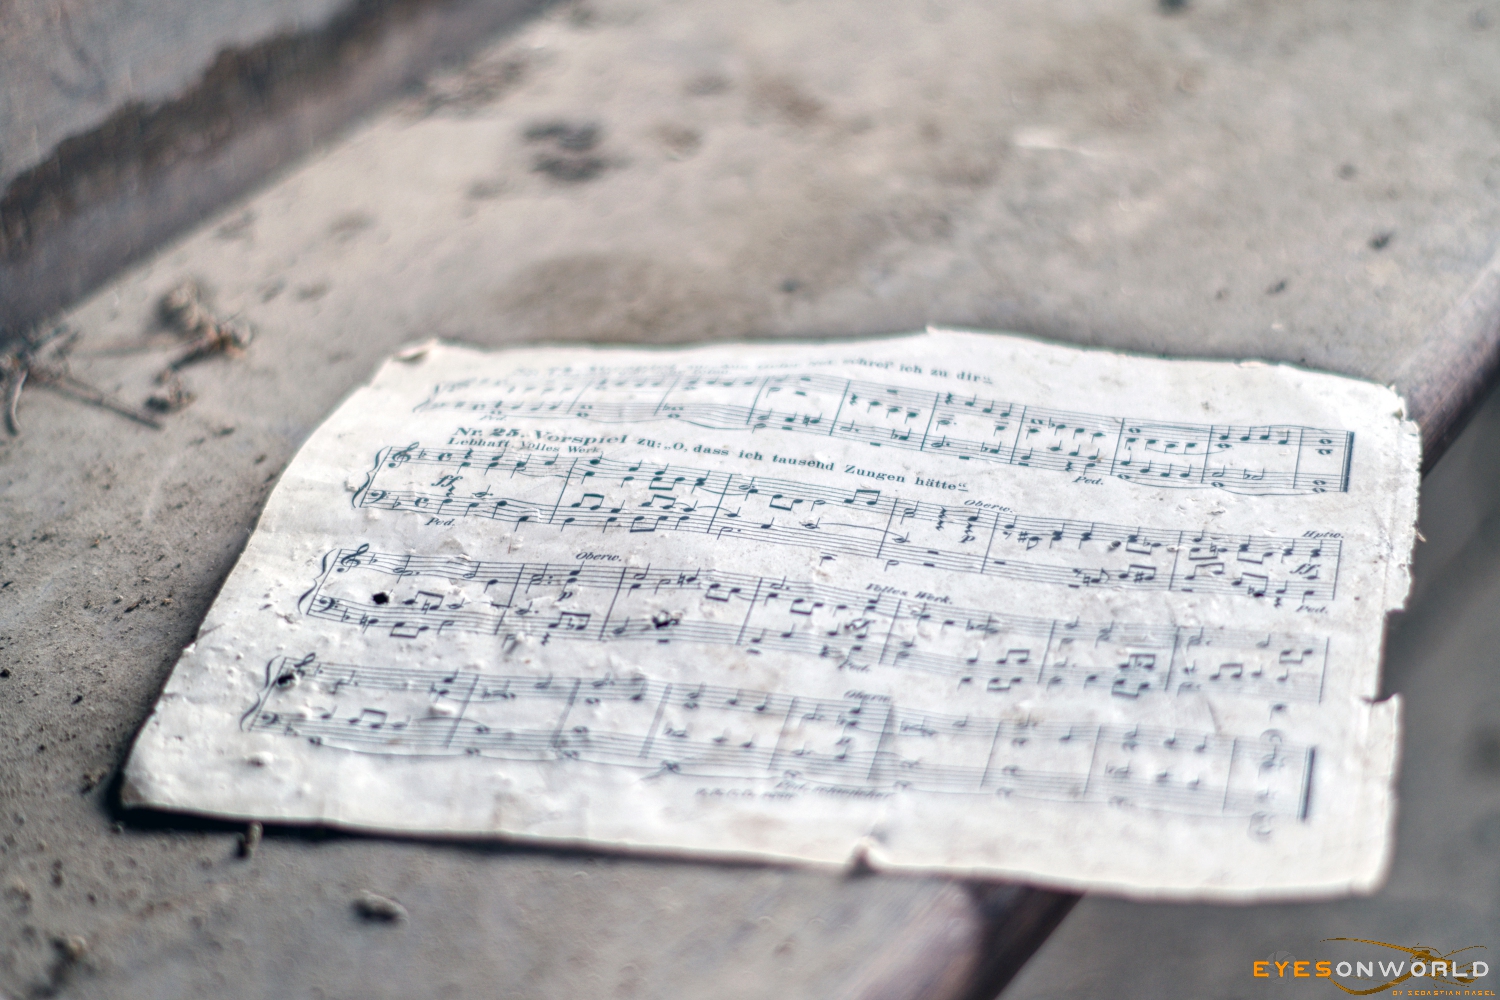 schrei' ich zu dir“
Ped.
Nr. 25. Vorspiel zu: „O, dass ich tausend Zungen hätte“
Lebhaft. Volles Werk.
Oberw.
Hptw.
ff
p
ff
Ped.
Ped.
Oberw.
Volles Werk.
p
Ped.
Oberw.
EYESONWORLD
BY SEBASTIAN NAGEL